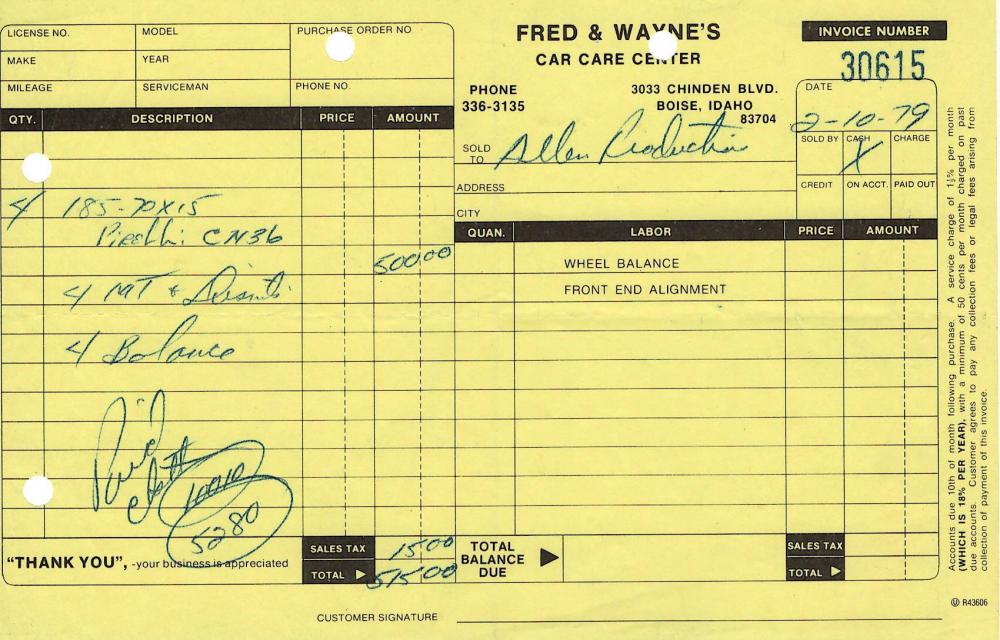 LICENSE NO. MODEL PURCHASE ORDER NO
MAKE YEAR
MILEAGE SERVICEMAN PHONE NO.
FRED & WAYNE'S
CAR CARE CENTER
PHONE
336-3135
3033 CHINDEN BLVD.
BOISE, IDAHO
83704
INVOICE NUMBER
30615
DATE
2-10-79
SOLD TO Allen Production
SOLD BY CASH X CHARGE
ADDRESS
CREDIT ON ACCT. PAID OUT
CITY
QTY. DESCRIPTION PRICE AMOUNT
4 185-70X15
Pirelli CN36
500 00
4 MT &
4 Balance
Paid
5280
"THANK YOU", -your business is appreciated
SALES TAX 15 00
TOTAL 515 00
QUAN. LABOR PRICE AMOUNT
WHEEL BALANCE
FRONT END ALIGNMENT
TOTAL
BALANCE
DUE
SALES TAX
TOTAL
CUSTOMER SIGNATURE
Accounts due 10th of month following purchase. A service charge of 1½% per month
(WHICH IS 18% PER YEAR), with a minimum of 50 cents per month charged on past
due accounts. Customer agrees to pay any collection fees or legal fees arising from
collection of payment of this invoice.
R43606